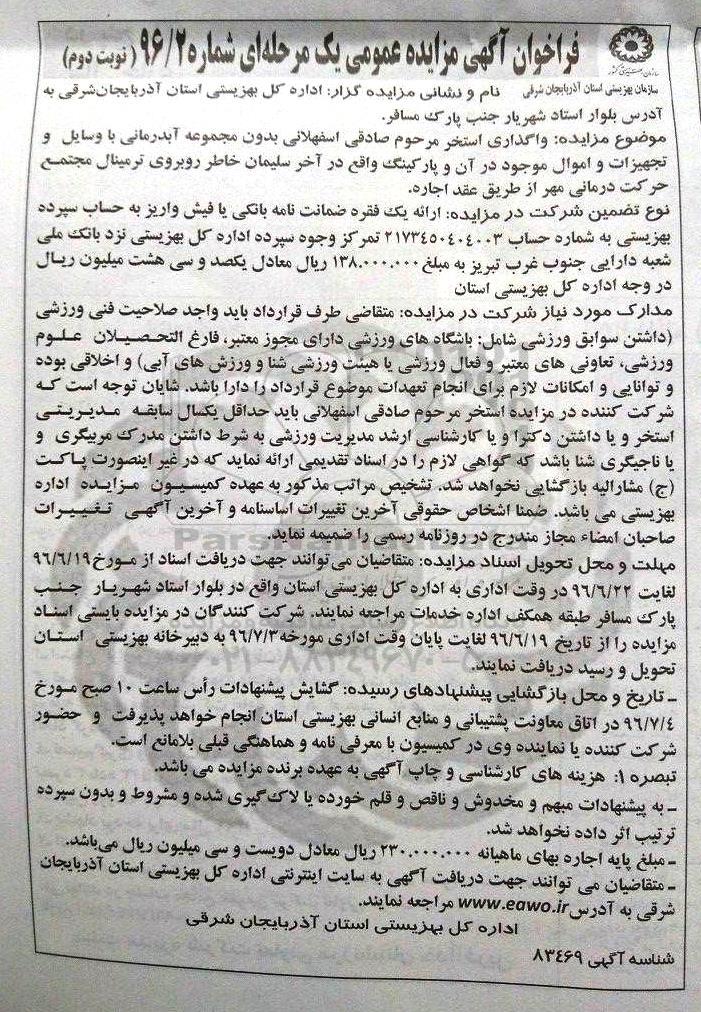 فراخوان آگهی مزایده عمومی یک مرحله‌ای شماره ۹۶/۲ ( نوبت دوم)
سازمان بهزیستی کشور
سازمان بهزیستی استان آذربایجان شرقی
نام و نشانی مزایده گزار: اداره کل بهزیستی استان آذربایجان‌شرقی به
آدرس بلوار استاد شهریار جنب پارک مسافر.
موضوع مزایده: واگذاری استخر مرحوم صادقی اسفهلانی بدون مجموعه آبدرمانی با وسایل و
تجهیزات و اموال موجود در آن و پارکینگ واقع در آخر سلیمان خاطر روبروی ترمینال مجتمع
حرکت درمانی مهر از طریق عقد اجاره.
نوع تضمین شرکت در مزایده: ارائه یک فقره ضمانت نامه بانکی یا فیش واریز به حساب سپرده
بهزیستی به شماره حساب ۲۱۷۳۴۵۰۴۰۴۰۰۳ تمرکز وجوه سپرده اداره کل بهزیستی نزد بانک ملی
شعبه دارایی جنوب غرب تبریز به مبلغ ۱۳۸.۰۰۰.۰۰۰ ریال معادل یکصد و سی هشت میلیون ریال
در وجه اداره کل بهزیستی استان
مدارک مورد نیاز شرکت در مزایده: متقاضی طرف قرارداد باید واجد صلاحیت فنی ورزشی
(داشتن سوابق ورزشی شامل: باشگاه های ورزشی دارای مجوز معتبر، فارغ التحصیلان علوم
ورزشی، تعاونی های معتبر و فعال ورزشی یا هیئت ورزشی شنا و ورزش های آبی) و اخلاقی بوده
و توانایی و امکانات لازم برای انجام تعهدات موضوع قرارداد را دارا باشد. شایان توجه است که
شرکت کننده در مزایده استخر مرحوم صادقی اسفهلانی باید حداقل یکسال سابقه مدیریتی
استخر و یا داشتن دکترا و یا کارشناسی ارشد مدیریت ورزشی به شرط داشتن مدرک مربیگری و
یا ناجیگری شنا باشد که گواهی لازم را در اسناد تقدیمی ارائه نماید که در غیر اینصورت پاکت
(ج) مشارالیه بازگشایی نخواهد شد. تشخیص مراتب مذکور به عهده کمیسیون مزایده اداره
بهزیستی می باشد. ضمنا اشخاص حقوقی آخرین تغییرات اساسنامه و آخرین آگهی تغییرات
صاحبان امضاء مجاز مندرج در روزنامه رسمی را ضمیمه نماید.
مهلت و محل تحویل اسناد مزایده: متقاضیان می‌توانند جهت دریافت اسناد از مورخ ۹۶/۶/۱۹
لغایت ۹۶/۶/۲۲ در وقت اداری به اداره کل بهزیستی استان واقع در بلوار استاد شهریار جنب
پارک مسافر طبقه همکف اداره خدمات مراجعه نمایند. شرکت کنندگان در مزایده بایستی اسناد
مزایده را از تاریخ ۹۶/۶/۱۹ لغایت پایان وقت اداری مورخه ۹۶/۷/۳ به دبیرخانه بهزیستی استان
تحویل و رسید دریافت نمایند.
ـ تاریخ و محل بازگشایی پیشنهادهای رسیده: گشایش پیشنهادات رأس ساعت ۱۰ صبح مورخ
۹۶/۷/۴ در اتاق معاونت پشتیبانی و منابع انسانی بهزیستی استان انجام خواهد پذیرفت و حضور
شرکت کننده یا نماینده وی در کمیسیون با معرفی نامه و هماهنگی قبلی بلامانع است.
تبصره ۱: هزینه های کارشناسی و چاپ آگهی به عهده برنده مزایده می باشد.
ـ به پیشنهادات مبهم و مخدوش و ناقص و قلم خورده یا لاک‌گیری شده و مشروط و بدون سپرده
ترتیب اثر داده نخواهد شد.
ـ مبلغ پایه اجاره بهای ماهیانه ۲۳۰.۰۰۰.۰۰۰ ریال معادل دویست و سی میلیون ریال می‌باشد.
ـ متقاضیان می توانند جهت دریافت آگهی به سایت اینترنتی اداره کل بهزیستی استان آذربایجان
شرقی به آدرس www.eawo.ir مراجعه نمایند.
اداره کل بهزیستی استان آذربایجان شرقی
شناسه آگهی ۸۳۴۶۹